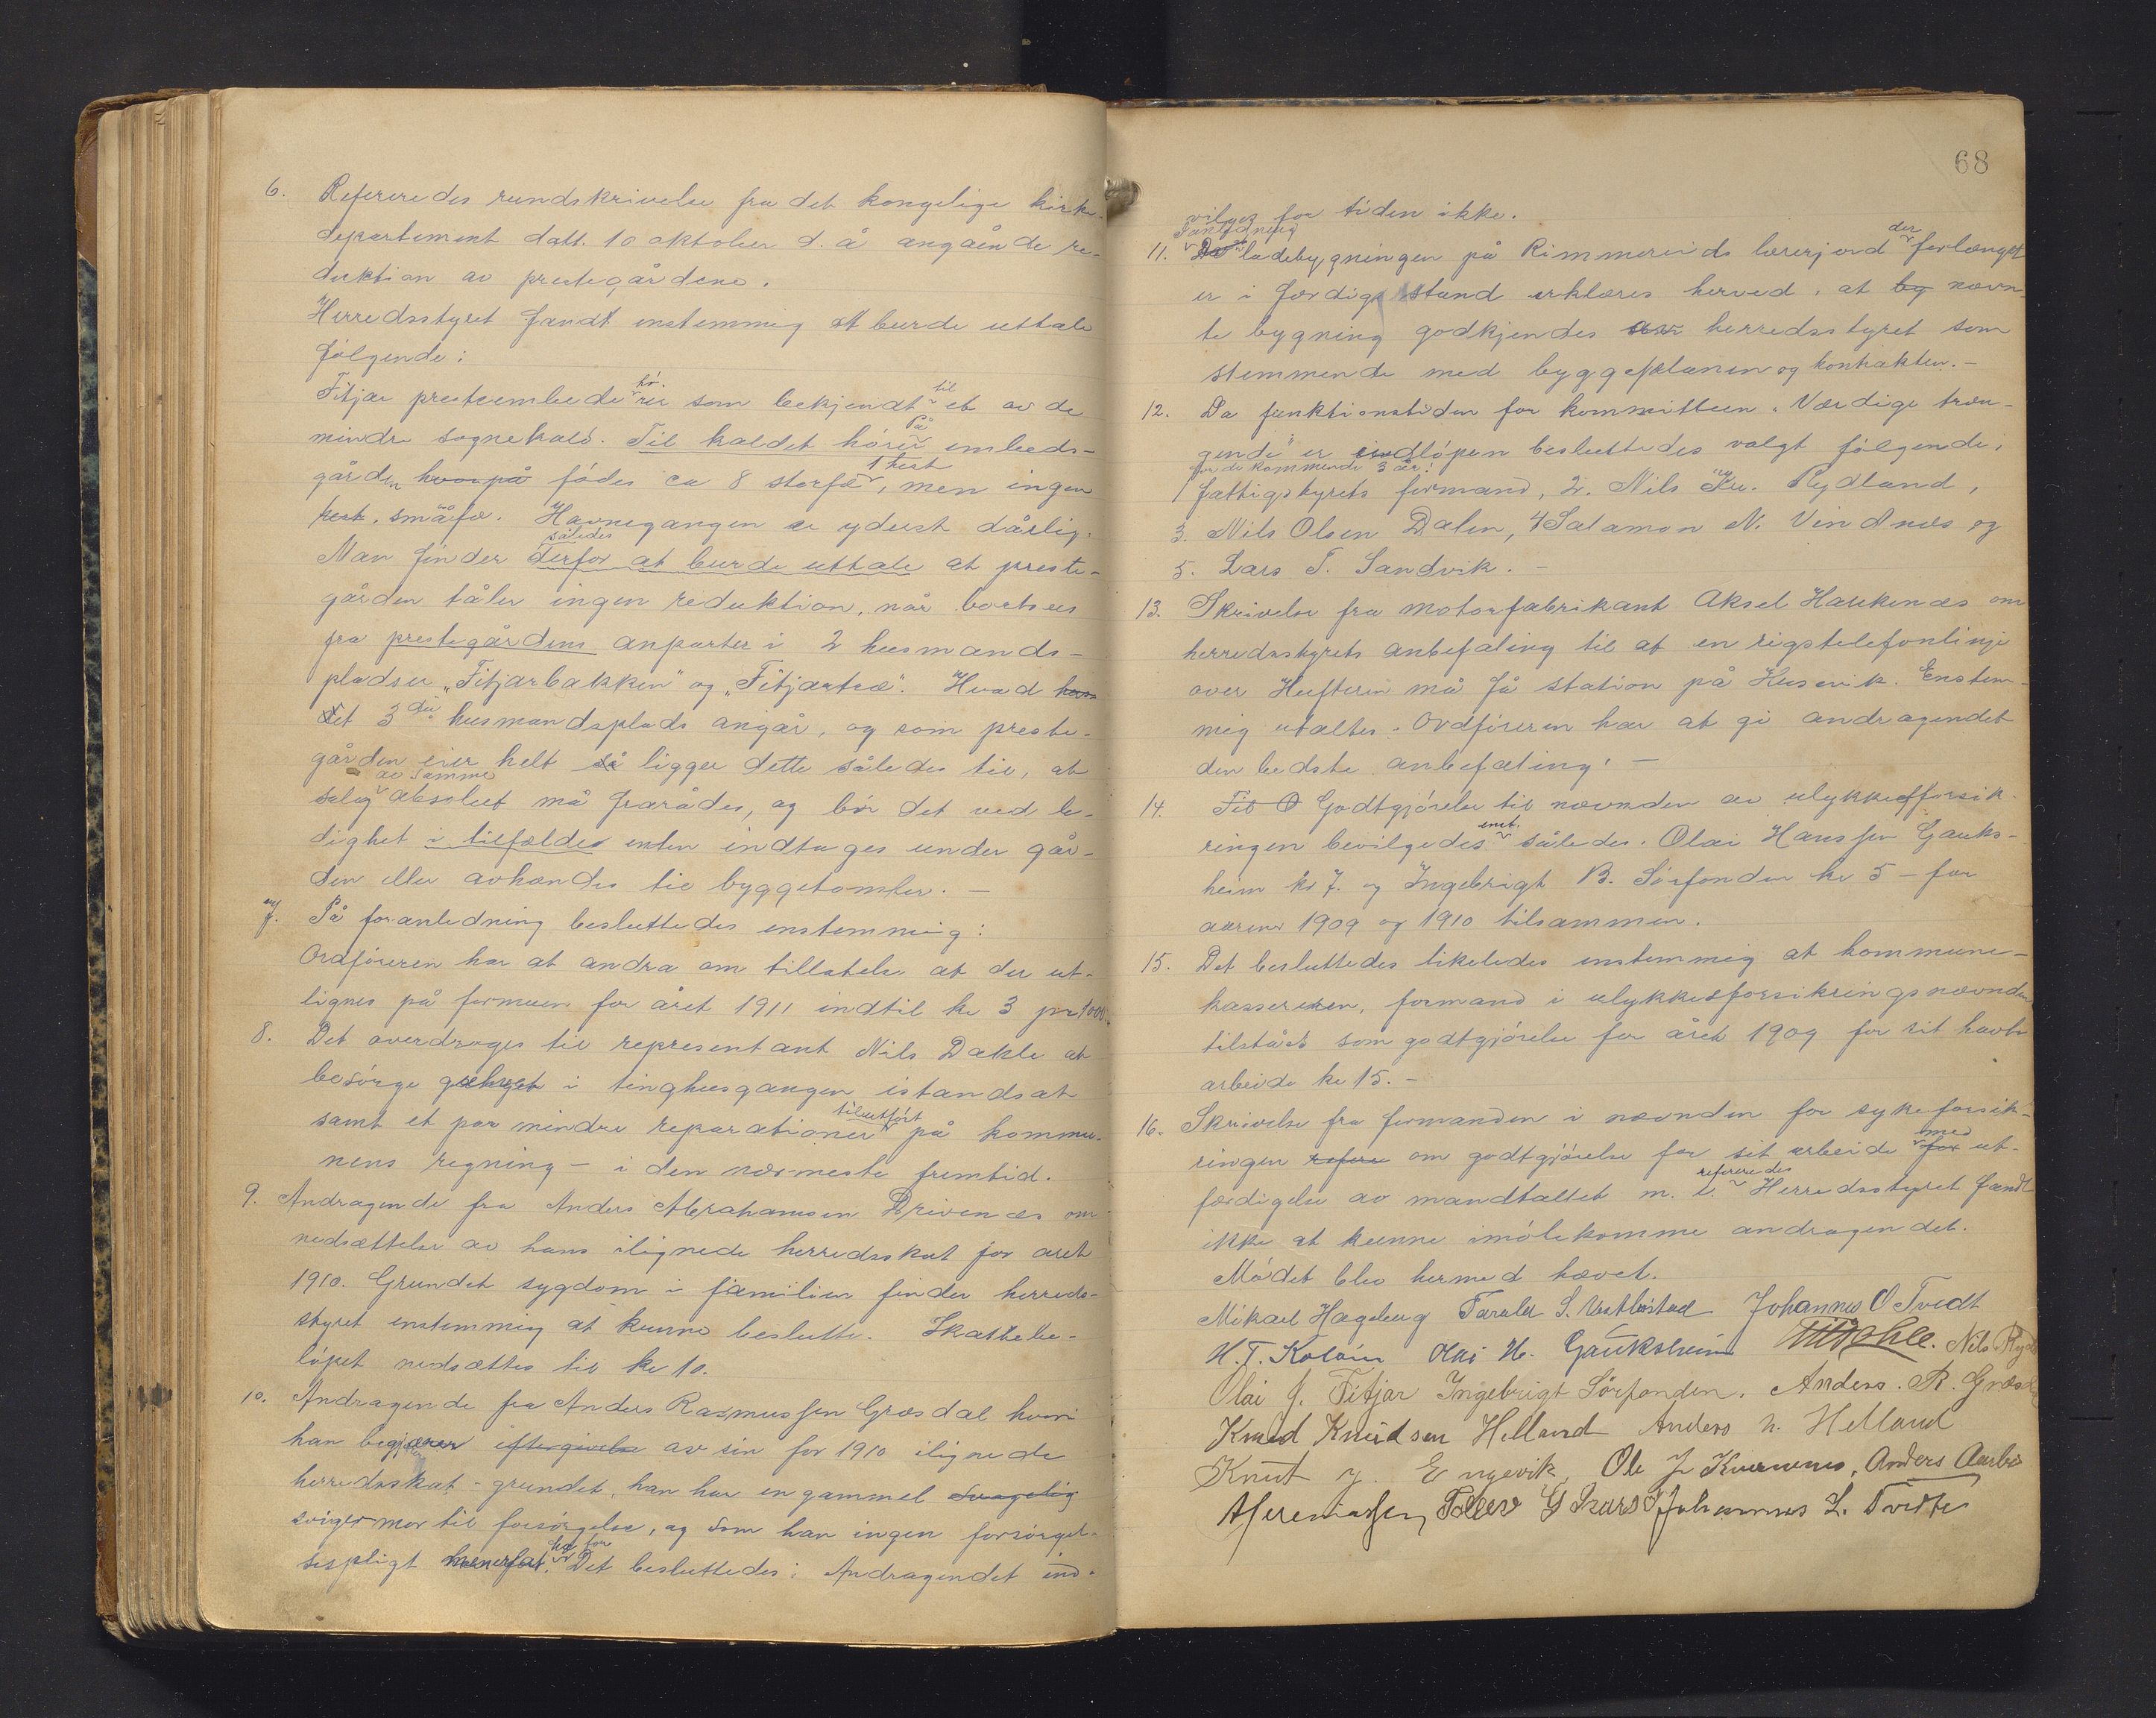 6. Refereredes rundskrivelse fra det kongelige kirke-
departement datt. 10 oktober d. å angående re-
duktion av prestegårdene.
Herredsstyret fandt enstemmig at burde uttale
følgende:
Fitjar presteembede hö-
rer som bekjendt til et av de
mindre sognekald. Til kaldet hörer embeds-
gården hvorpå på födes ca 8 storfæ, 1 hest, men ingen
hest, småfæ. Havnegangen er yderst dårlig.
Man finder således derfor at burde uttale at preste-
gården tåler ingen reduktion, når bortsees
fra prestegårdens anparter i 2 husmands-
pladser „Fitjarbakken" og „Fitjartræ". Hvad
det 3die husmandsplads angår, og som preste-
gården eier helt så ligger dette således til, at
salg av samme absolut må frarådes, og bör det ved le-
dighet i tilfældes enten indtages under går-
den eller avhændes til byggetomter. —
7. På foranledning besluttedes enstemmig:
Ordføreren har at andra om tillatelse at der ut-
lignes på formuen for året 1911 indtil kr 3 pr 1000.
8. Det overdrages til representant Nils Dahle at
besörge gulvet i tinghusgangen istandsat
samt et par mindre reparationer tilutfört på kommu-
nens regning – i den nærmeste fremtid.
9. Andragende fra Anders Abrahamsen Drivenæs om
nedsættelse av hans ilignede herredsskat for året
1910. Grundet sygdom i familien finder herreds-
styret enstemmig at kunne beslutte. Skattebe-
löpet nedsættes til kr 10.
10. Andragende fra Anders Rasmussen Græsdal hvori
han begjærer eftergivelse av sin for 1910 ilignede
herredsskat – grundet, han har en gammel svagelig
svigermor til forsörgelse, og som han ingen forsörgel-
sespligt har for. Det besluttedes: Andragendet ind-
68
vilges for tiden ikke.
11. I anledning ladebygningen på Rimmereids lærerjord der forlængst
er i færdig stand erklæres herved, at by nævn-
te bygning godkjendes av herredsstyret som
stemmende med byggeplanen og kontrakten. –
12. Da funktionstiden for kommitteen „Værdige træn-
gende" er utlöpen besluttedes valgt fölgende
for de kommende 3 år:
1 fattigstyrets formand, 2. Nils Kn. Rydland,
3. Nils Olsen Dalen, 4 Salamon N. Vindnæs og
5. Lars T. Sandvik. –
13. Skrivelse fra motorfabrikant Aksel Haukenæs om
herredsstyrets anbefaling til at en rigstelefonlinje
over Huftern må få station på Husevik. Enstem-
mig utaltes: Ordføreren har at gi andragendet
den bedste anbefaling. –
14. Til O Godtgjörelse til nævnden av ulykkesforsik-
ringen bevilgedes enst. således. Olai Hanssen Gauks-
heim kr 7. og Ingebrigt B. Sörfonden kr 5 – for
aarene 1909 og 1910 tilsammen.
15. Det besluttedes likeledes enstemmig at kommune-
kassereren, formand i ulykkesforsikringsnævnden
tilståes som godtgjörelse for året 1909 for sit havte
arbeide kr 15. –
16. Skrivelse fra formanden i nævnden for sykeforsik-
ringen refere om godtgjörelse for sit arbeide med for ut-
færdigelse av mandtallet m. v. refereredes Herredsstyret fandt
ikke at kunne imötekomme andragendet.
Mödet blev hermed hævet.
Mikael Hageberg Taraler S. Vestbøstad Johannes O Tvedt
H. T. Koløin Olai H. Gauksheim NNDahle. Nils Ryd
Olai J. Fitjar Ingebrigt Sörfonden. Anders. R. Græsd
Knud Knudsen Helland Anders N. Helland
Knut J. Engevik, Ole J Kvernenes, Anders Aarbø
Tollev G Skaar Johannes L. Tvedte